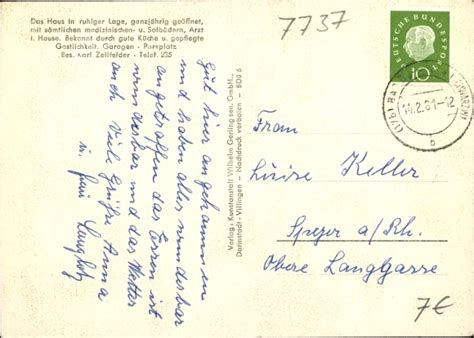 Das Haus in ruhiger Lage, ganzjährig geöffnet,
mit sämtlichen medizinischen- u. Solbädern, Arzt
i. Hause. Bekannt durch gute Küche u. gepflegte
Gastlichkeit. Garagen - Parkplatz.
Bes. Karl Zeilfelder - Telef. 255
7737
DEUTSCHE BUNDESPOST
10
14.2.61-12
b
Gut hier angekommen
und haben alles wunderbar
angetroffen das Essen ist
wunderbar und das Wetter
auch Viele Grüße Anna
u.
Verlag: Kunstanstalt Wilhelm Gerling sen. GmbH.,
Darmstadt-Villingen - Nachdruck verboten - BDU 6
Frau
Luise Keller
Speyer a/Rh.
Obere Langgasse
7€